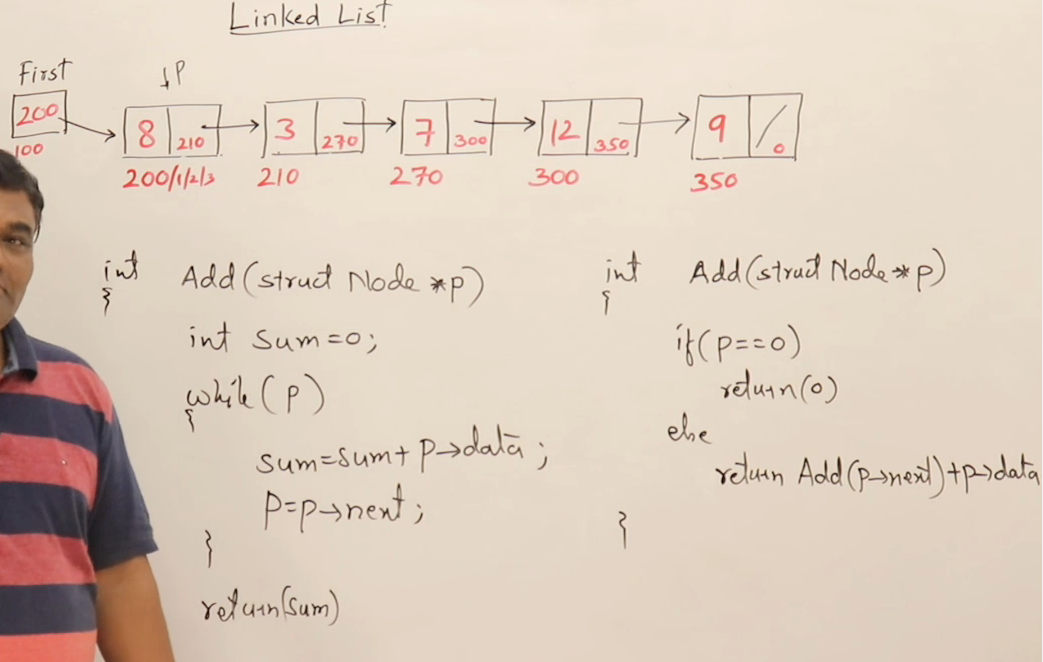 Linked List
First
↓P
200
100
8 210
3 270
7 300
12 350
9 / 0
200/1/2/3
210
270
300
350
int Add(struct Node *p)
{
int sum=0;
while(p)
{
sum=sum+p→data;
p=p→next;
}
return(sum)
int Add(struct Node *p)
{
if(p==0)
return(0)
else
return Add(p→next)+p→data
}